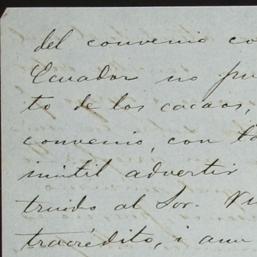 del convenio co
Ecuador no pu
to de los cacaos,
convenio, con t
inutil advertir
truido al Sor.
tracrédito, i aun